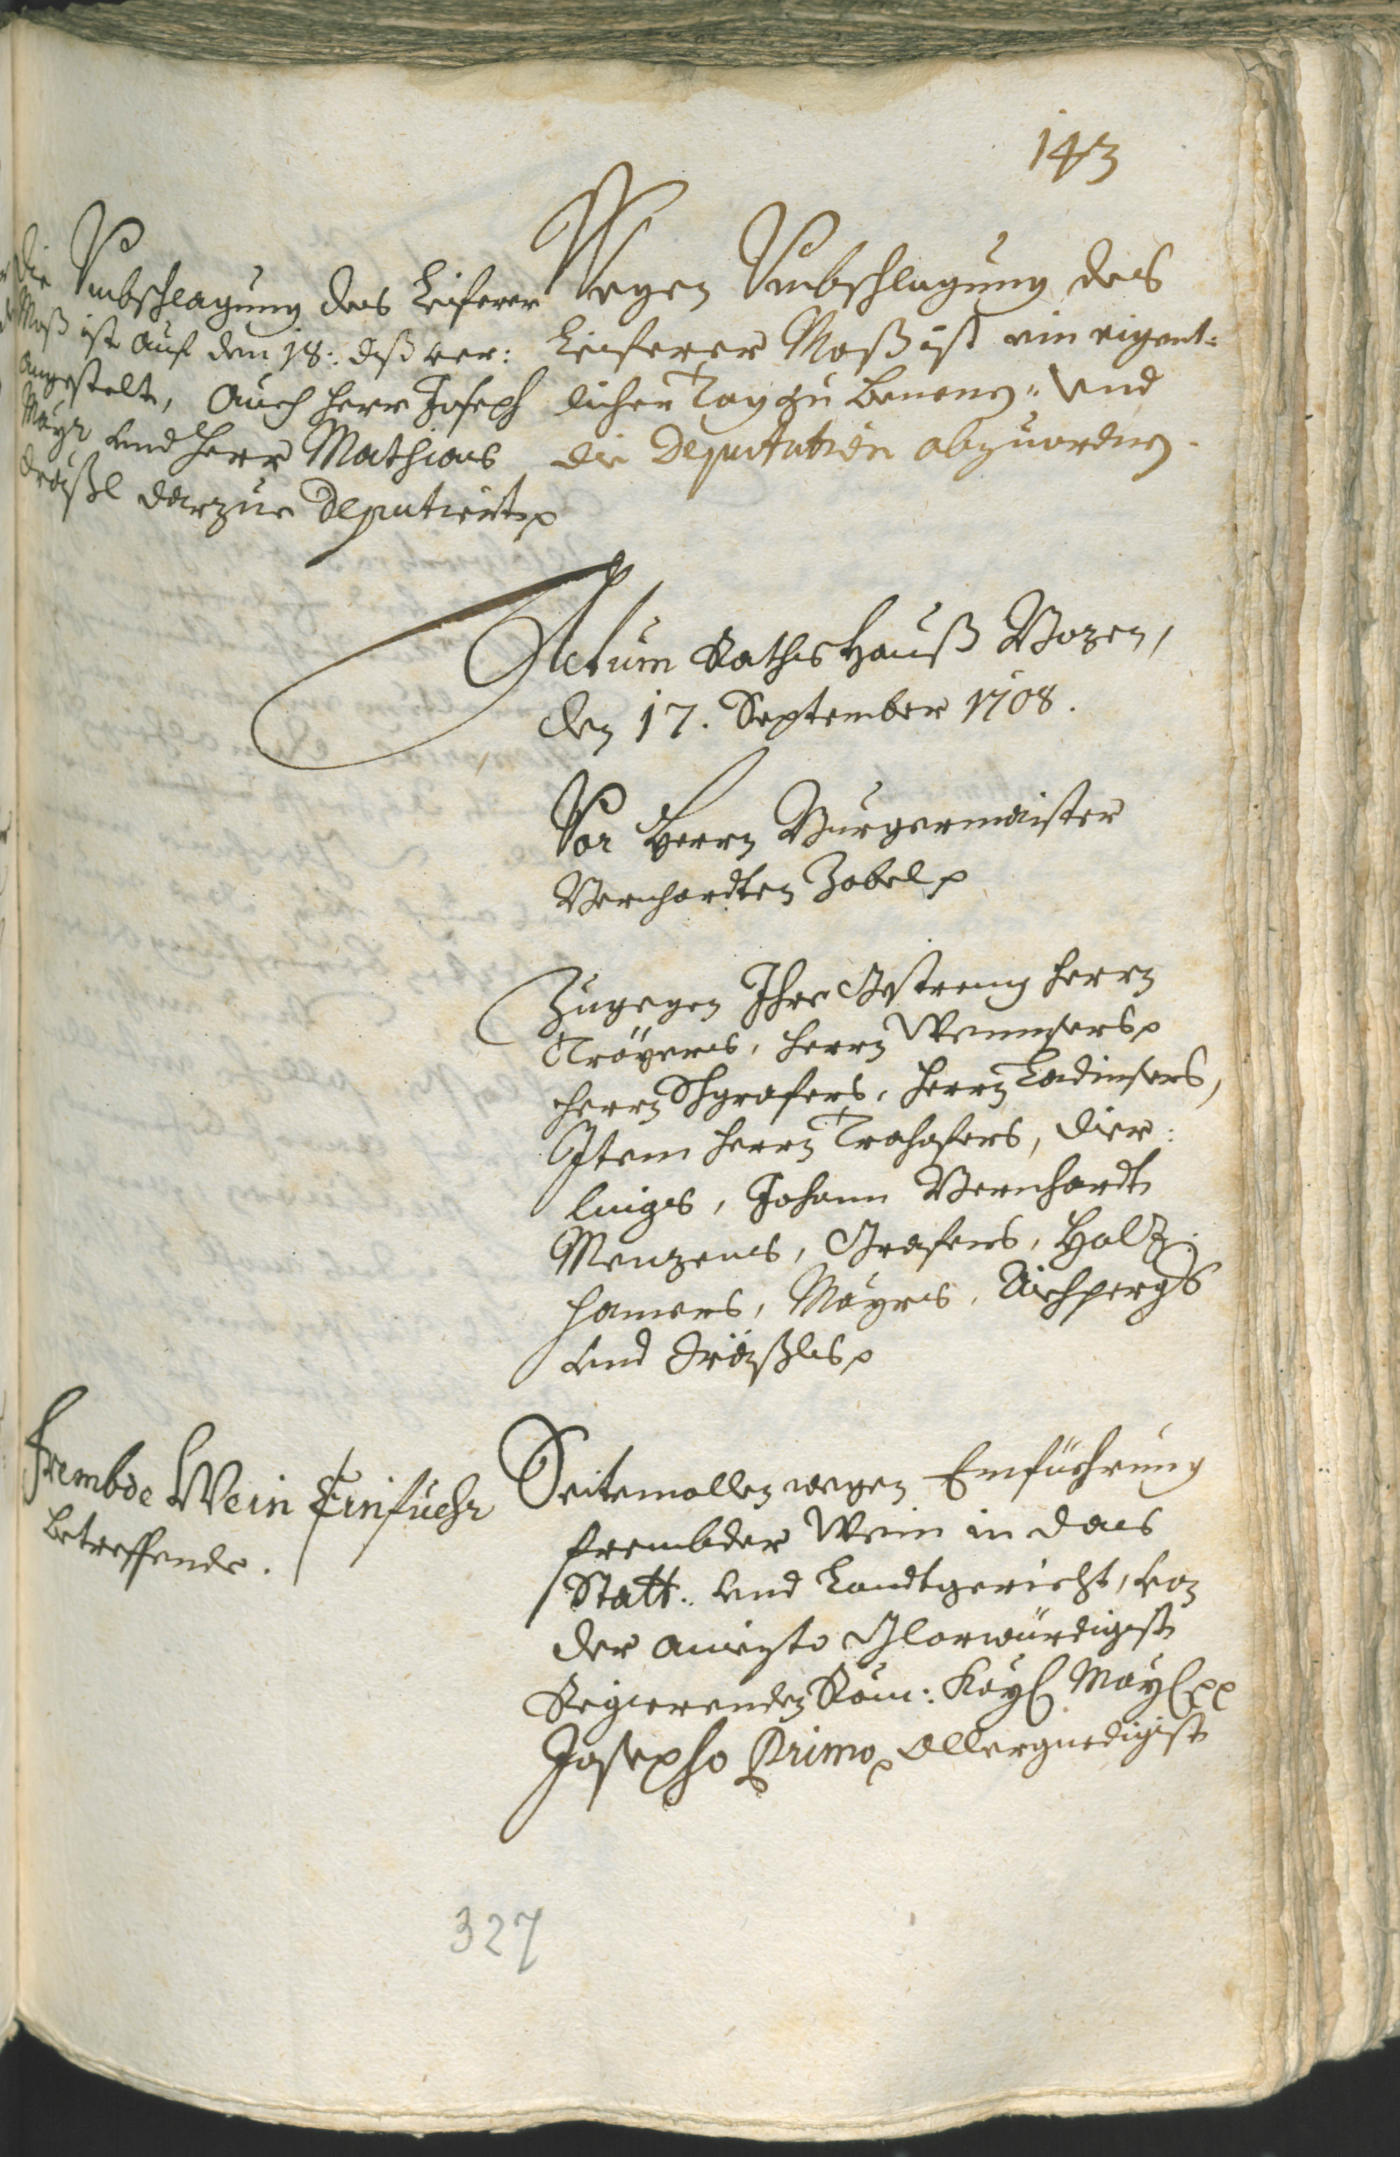 143
Die Vmbschlagung des Leiferer
Moß ist auf den 18: diß ver:
angestelt, auch Herr Joseph
Mayr vnd Herr Mathias
Dräxl darzue Deputiert
Wegen Vmbschlagung des
Leiferer Moß ist ein eigent:
licher Tag zu benenen und
die Deputation abzuordnen.
Actum Rathshauß Bozen,
den 17. September 1708.
Vor Herrn Burgermaister
Bernhardten Zobel
Zugegen Ihro Gestreng Herrn
Tröyers, Herrn Wennsers
Herrn Schgrafers, Herrn Ladinsers,
Item Herrn Trohofers, Dier:
lings, Johann Bernhardt
Menzens, Grafens, Holz:
hamers, Mayrs, Aichpergs
vnd Dräxls
Frembde Wein Einfuehr
betreffende.
Seitemallen wegen Einfüehrung
frembder Wein in das
Statt: vnd Landtgericht, von
der aniezto Glorwürdigist
Regierenden Röm: Kay: May:
Josepho Primo allergnedigist
327